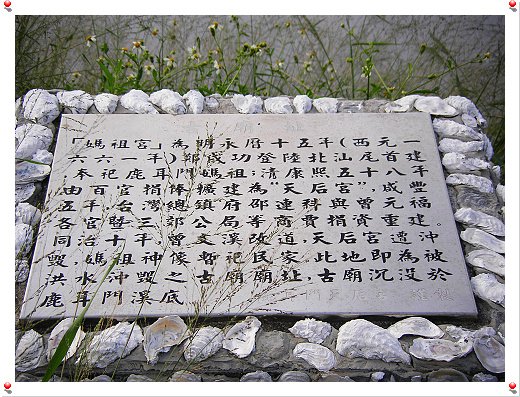 「媽祖宮」為明永曆十五年(西元一
六六一年)鄭成功登陸北汕尾首建
奉祀鹿耳門媽祖;清康熙五十八年
由百官捐俸擴建為“天后宮”,咸豐
五年台灣總鎮府邵連科與曾元福
各官暨三郊公局等商費捐資重建。
同治十年,曾文溪改道,天后宮遭沖
毀,媽祖神像暫祀民家,此地即為被
洪水沖毀之古廟廟址,古廟沉沒於
鹿耳門溪底